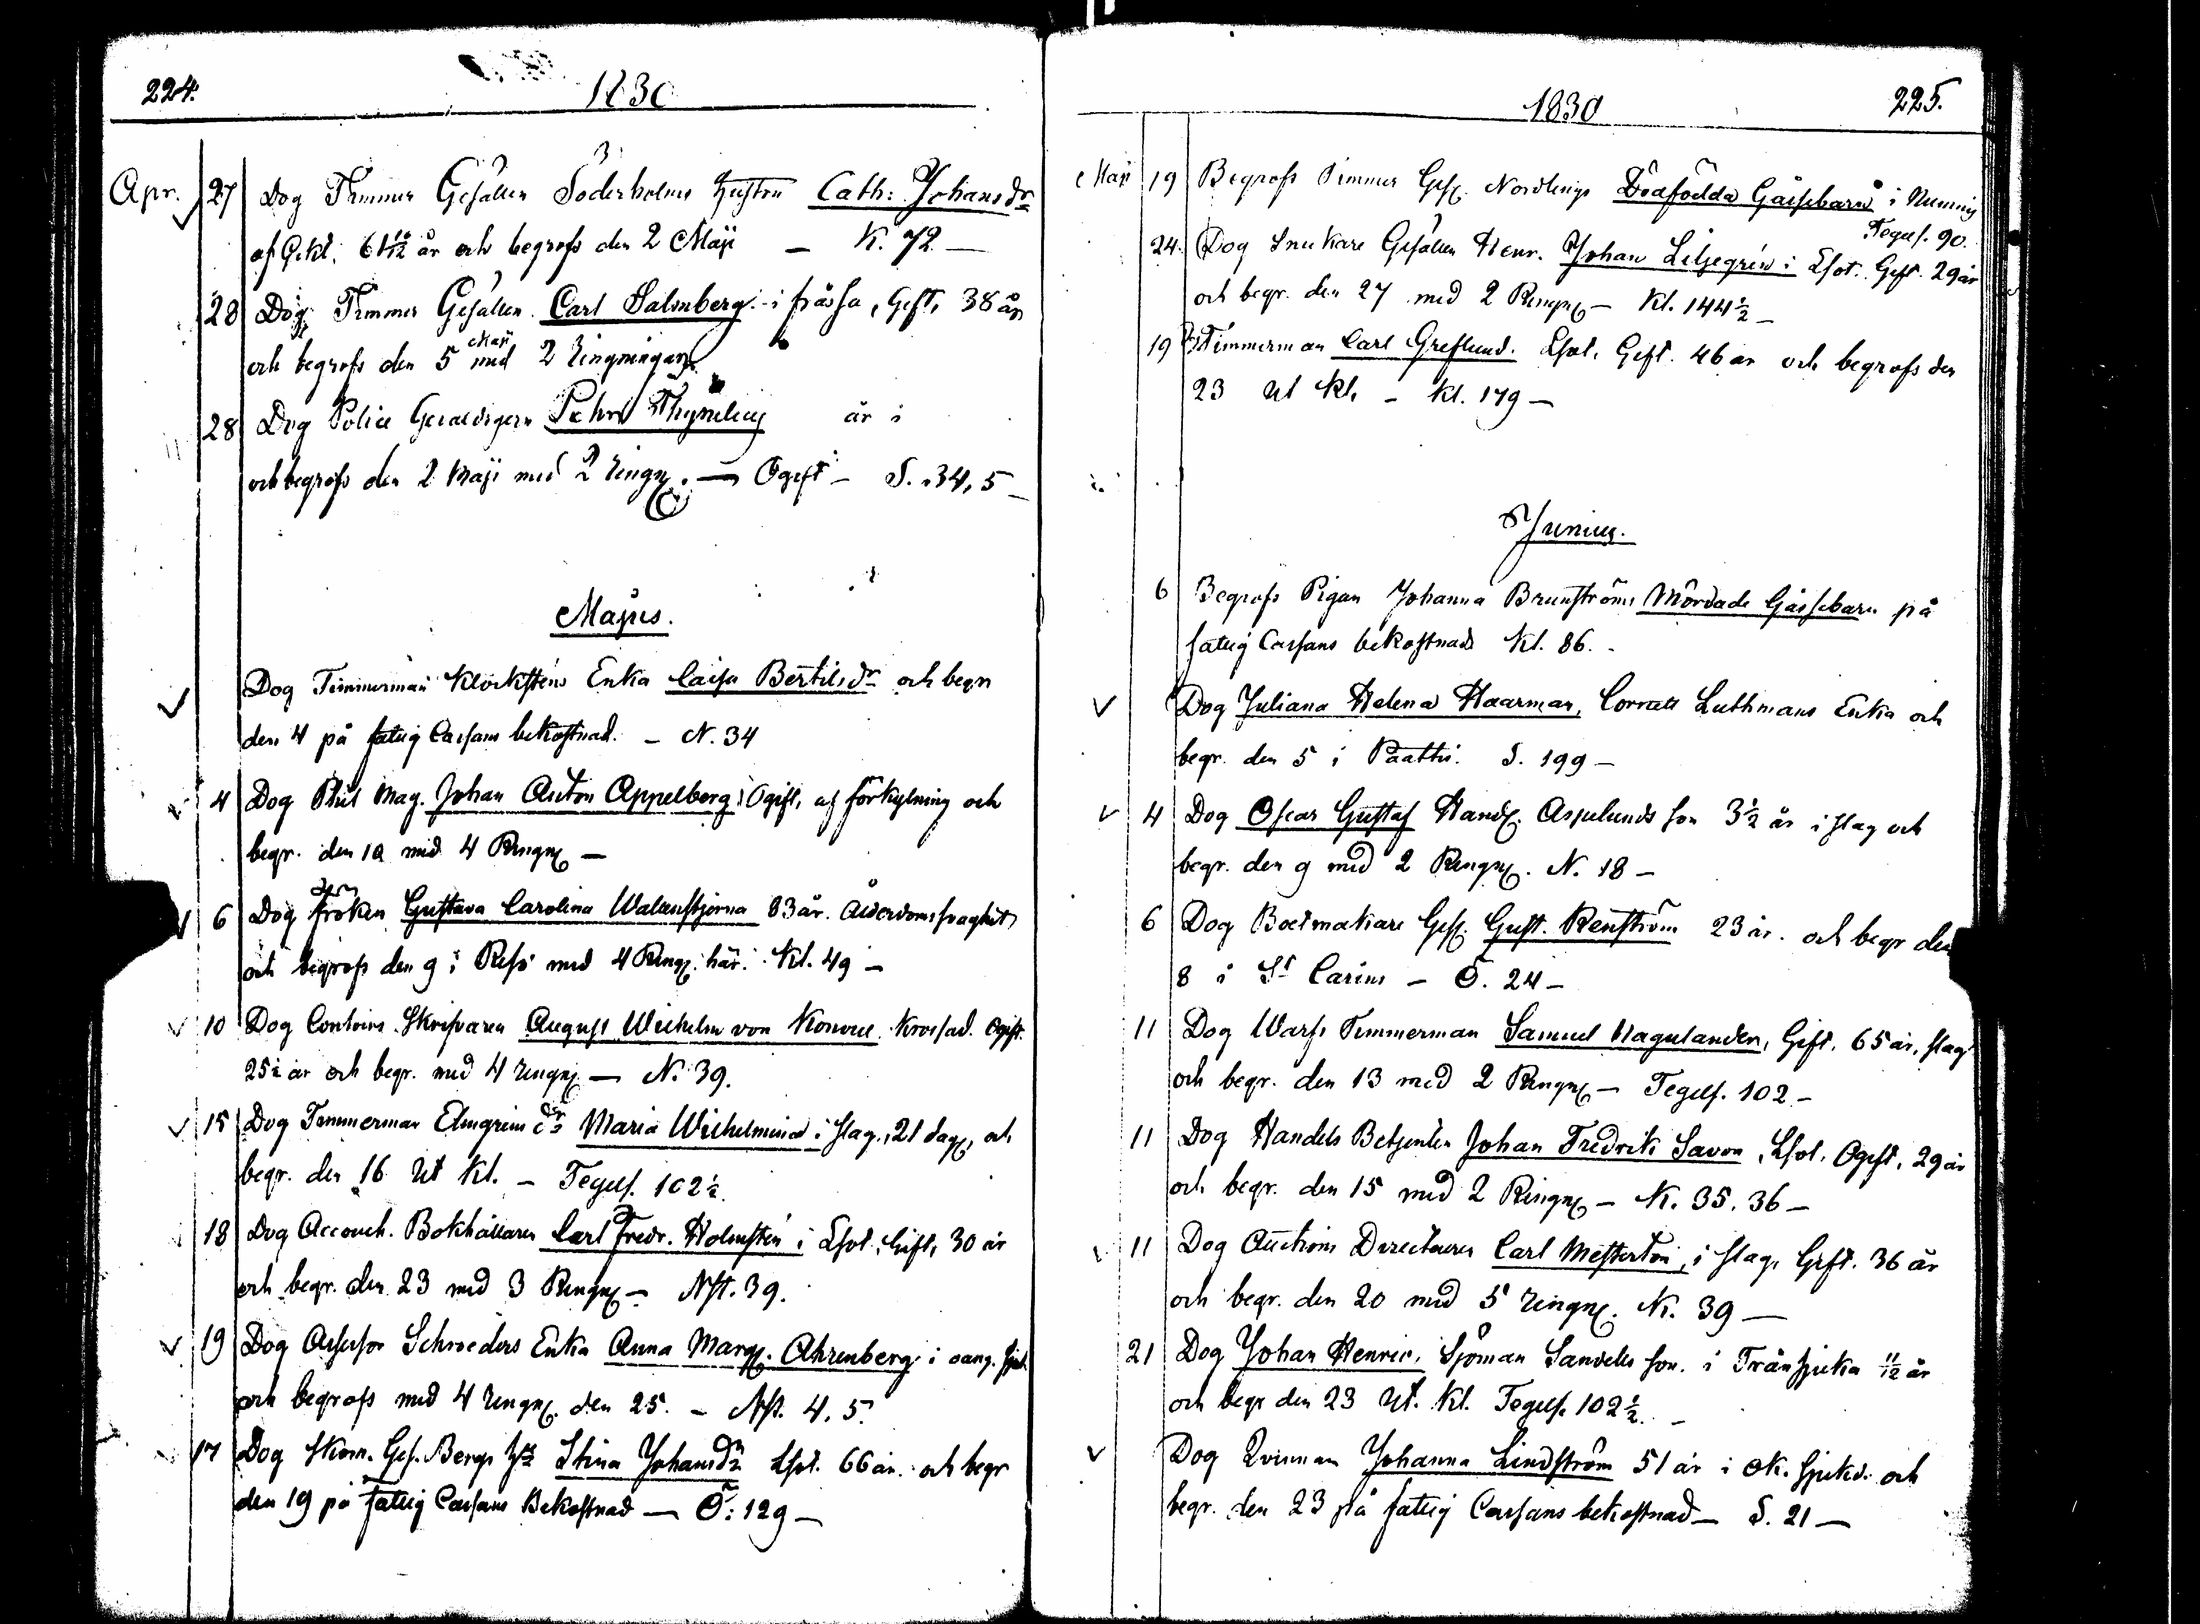 224.
1830
Apr. 27 Dog Timmer Gesällen Söderholms hustru Cath: Johansdr
af G.kt. 61 10/12 år och begrofs den 2 Maji — K. 72 —
28 Dog Timmer Gesällen Carl Salmberg i frossa, Gift, 38 år
och begrofs den 5 Maji med 2 Ringningar
28 Dog Police Pehr år i
och begrofs den 2 Maji med 2 Ringn. — Ogift — S. 34, 5 —
Majus.
Dog Timmerman Klöckstens Enka Caisa Bertilsdr och begr
den 4 på fattig Cassans bekostnad. — N. 34
4 Dog Phil Mag. Johan Anton Appelberg, Ogift, af förkylning och
begr. den 10 med 4 Ringn —
6 Dog fröken Gustava Carolina Wallenstjerna 83 år. Ålderdomssvaghet
och begrofs den 9 i Reso med 4 Ringn. här. Kl. 49 —
10 Dog Contoirs Skrifvaren August Wilhelm von Konow Ogift.
25 1/2 år och begr. med 4 Ringn — N. 39.
15 Dog Timmerman Elmgrens dr Maria Wilhelmina i slag, 21 dag, och
begr. den 16 Ut Kl. — Tegels. 102 1/2.
18 Dog Accouch. Bokhållaren Carl Fredr. Holmsten i Lsot, Gift, 30 år
och begr. den 23 med 3 Ringn — Nst. 39.
19 Dog Assessor Schroeders Enka Anna Marg. Ahrenberg i
och begrofs med 4 Ringn. den 25. — Nst. 4. 5.
17 Dog Skom. Ges. Bergs Stina Johansdr Lsot. 66 år. och begr
den 19 på fattig Cassans Bekostnad — Ö: 129 —
1830
225.
Maji 19 Begrofs Timmer Ges. Nordlings Dödfödda Gossebarn i Nummis
Tegels. 90.
24. Dog Snickare Gesällen Henr. Johan Liljegrén i Lsot. Gift. 29 år
och begr. den 27 med 2 Ringn — Kl. 144 1/2 —
19 Timmerman Carl Greflund. Lsot. Gift. 46 år och begrofs den
23 Ut Kl. — Kl. 179 —
Junius.
6 Begrofs Pigan Johanna Brunströms Mördade Gossebarn på
fattig Cassans bekostnad Kl. 86.
Dog Juliana Helena Haarman, Luthmans Enka och
begr. den 5 i Paattis. S. 199 —
4 Dog Oscar Gustaf Handl. Asplunds son 3 1/2 år i slag och
begr. den 9 med 2 Ringn. N. 18 —
6 Dog Boetmakare Ges. Gust. Renström 23 år. och begr den
8 i St Carins — Ö. 24 —
11 Dog Warfs Timmerman Samuel Hagelander, Gift. 65 år, slag
och begr. den 13 med 2 Ringn — Tegels. 102 —
11 Dog Handels Betjenten Johan Fredrik Savon, Lsot, Ogift, 29 år
och begr. den 15 med 2 Ringn — N. 35. 36 —
11 Dog Auctions Directeuren Carl Mesterton, i slag, Gift. 36 år
och begr. den 20 med 5 Ringn. N. 39 —
21 Dog Johan Henric, Sjöman Sandells son. i Trånsjuka 11/12 år
och begr den 23 Ut. Kl. Tegels. 102 1/2. —
Dog Qvinnan Johanna Lindström 51 år i ok. sjukd. och
begr. den 23 på fattig Cassans bekostnad — S. 21 —